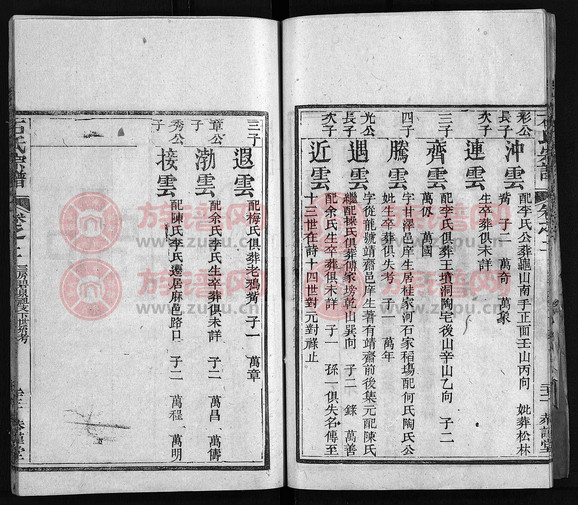 彩公長子 沖雲 配李氏公葬龜山南手正面壬山丙向 妣葬松林
脊 子二 萬奇 萬象
次子 連雲 生卒葬俱未詳
三子 齊雲 配李氏俱葬王墳洞陶宅後山辛山乙向 子二
萬仞 萬國
四子 騰雲 字甘澤邑庠生居桂家河石家稻場配何氏陶氏公
妣生卒葬俱失考 子一 萬年
光公長子 遇雲 字從龍號靖齋邑庠生著有靖齋前後集元配陳氏
繼配 氏俱葬 家塝乾山巽向 子二 錸 萬善
次子 近雲 配余氏生卒葬俱未詳 子一 孫一俱失名傳至
十三世在詩十四世對元對祿止
三子 遐雲 配梅氏俱葬老鴉脊 子一 萬章
章公子 渤雲 配余氏李氏生卒葬俱未詳 子二 萬昌 萬儔
秀公子 接雲 配陳氏李氏遷居麻邑路口 子二 萬程 萬明
石氏宗譜
卷之二
族譜网
www.zupu.cn